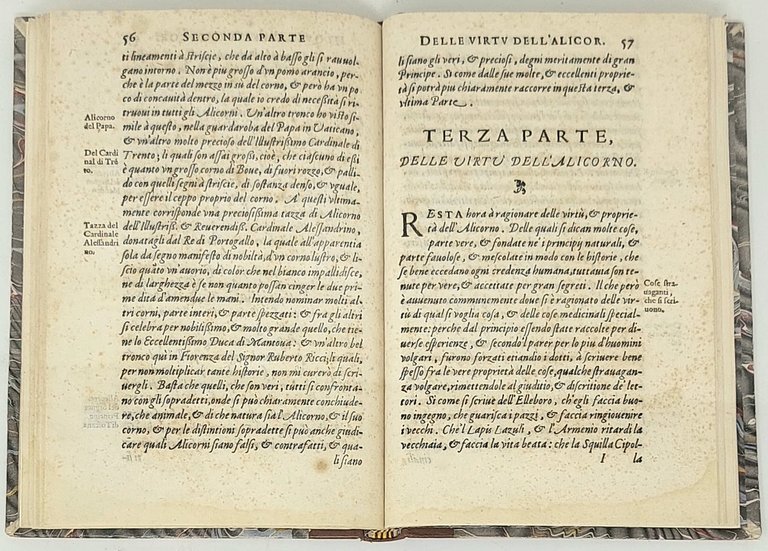 56 SECONDA PARTE
ti lineamenti à striscie, che da alto à basso gli si rauuol-
gano intorno. Non è piu grosso d'vn pomo arancio, per-
che è la parte del mezzo in sù del corno, & però ha vn po
co di concauità dentro, la quale io credo di necessità si ri-
truoui in tutti gli Alicorni. Vn'altro tronco ho visto si-
Alicorno
del Papa.
mile à questo, nella guardaroba del Papa in Vaticano,
& vn'altro molto precioso dell'Illustrissimo Cardinale di
Del Cardi
nal di Trẽ
to.
Trento; li quali son assai grossi, cioè, che ciascuno di essi
è quanto vn grosso corno di Boue, di fuori rozzo, & palli-
do con quelli segni à striscie, di sostanza denso, & vguale,
per essere il ceppo proprio del corno. A' questi vltima-
mente corrisponde vna preciosissima tazza di Alicorno
Tazza del
Cardinale
Alessandri
no.
dell'Illustriss. & Reuerendiss. Cardinale Alessandrino,
donatagli dal Re di Portogallo, la quale all'apparentia
sola da segno manifesto di nobiltà, d'vn corno lustro, & li-
scio quãto vn'auorio, di color che nel bianco impallidisce,
ne di larghezza è se non quanto possan cinger le due pri-
me dita d'amendue le mani. Intendo nominar molti al-
tri corni, parte interi, & parte spezzati: & fra gli altri
si celebra per nobilissimo, & molto grande quello, che tie-
ne lo Eccellentissimo Duca di Mantoua: & vn'altro bel
tronco qui in Fiorenza del Signor Ruberto Ricci; li quali,
per non moltiplicar tante historie, non mi curerò di scri-
uergli. Basta che quelli, che son veri, tutti si confronta-
no con gli sopradetti, onde si può chiaramente conchiude-
re, che animale, & di che natura sia l'Alicorno, & il suo
corno, & per le distintioni sopradette si può anche giudi-
care quali Alicorni siano falsi, & contrafatti, & qua-
li siano
DELLE VIRTV DELL'ALICOR. 57
li siano gli veri, & preciosi, degni meritamente di gran
Principe. Si come dalle sue molte, & eccellenti proprie-
tà si potrà piu chiaramente raccorre in questa terza, &
vltima Parte.
TERZA PARTE,
DELLE VIRTV DELL'ALICORNO.
RESTA hora à ragionare delle virtù, & proprie-
tà dell'Alicorno. Delle quali si dican molte cose,
parte vere, & fondate ne' principij naturali, &
parte fauolose, & mescolate in modo con le historie, che
se bene eccedano ogni credenza humana, tuttauia son te-
nute per vere, & accettate per gran segreti. Il che però
Cose stra-
uaganti,
che si scri-
uono.
è auuenuto communemente doue si è ragionato delle vir-
tù di qual si voglia cosa, & delle cose medicinali special-
mente: perche dal principio essendo state raccolte per di-
uerse esperienze, & secondo l parer per lo piu d'huomini
volgari, furono forzati etiandio i dotti, à scriuere bene
spesso fra le vere proprietà delle cose, qualche strauagan-
za volgare, rimettendole al giuditio, & discritione de' let-
tori. Si come si scriue dell'Elleboro, ch'egli faccia buo-
no ingegno, che guarisca i pazzi, & faccia ringiouenire
i vecchi. Che'l Lapis Lazuli, & l'Armenio ritardi la
vecchiaia, & faccia la vita beata: che la Squilla Cipol-
I la